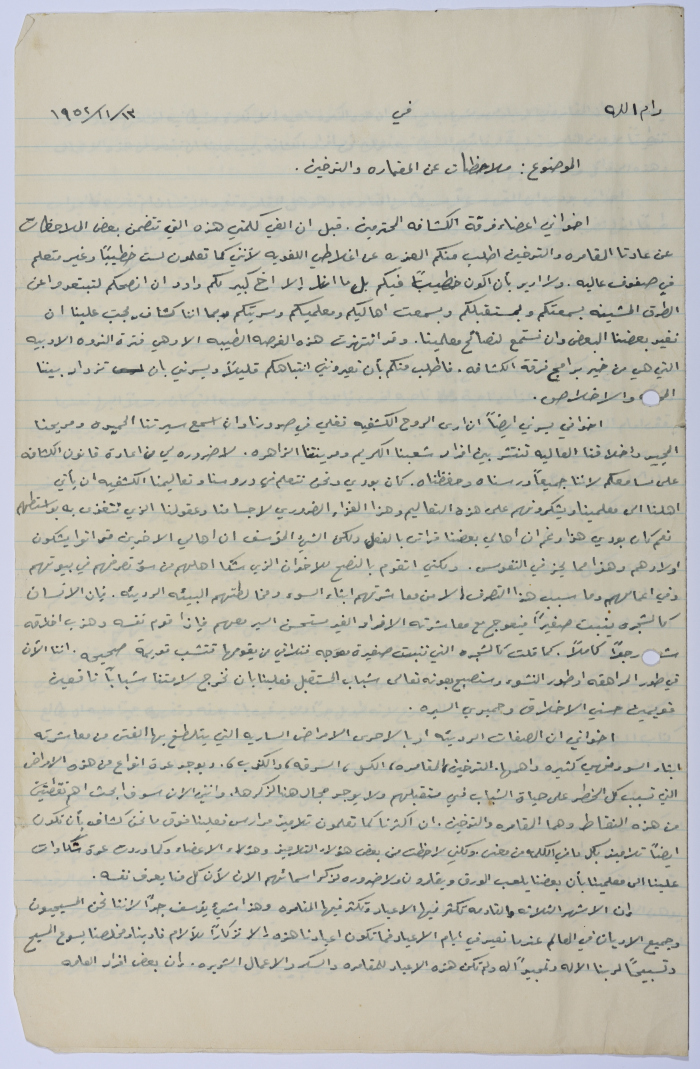 رام الله في ١٩٥٢/١١/١٣
الموضوع : ملاحظات عن المقامره والتدخين .
اخواني اعضاء فرقة الكشافه المحترمين . قبل ان القي كلمتي هذه التي تتضمن بعض الملاحظات
عن عادتا القامره والتدخين اطلب منكم العذر عن اغلاطي اللغويه لأنني كما تعلمون لست خطيبًا وغير متعلم
في صفوف عاليه . ولا اريد بأن اكون خطيبًا فيكم بل ما انا إلا اخ كبير لكم واود ان انصحكم لتبتعدوا عن
الطرق المشينه بسمعتكم وبمستقبلكم وبسمعت اهاليكم ومعلميكم وسريتكم وبما اننا كشاف يجب علينا ان
نفيد بعضنا البعض وان نستمع لنصائح معلمينا . وقد انتهزت هذه الفرصه الطيبه الا وهي فترة الندوه الادبيه
التي هي من خير برامج فرقة الكشافه . فاطلب منكم بأن تعيروني انتباهكم قليلاً ويسرني بان تزداد بيننا
والاخلاص .
اخواني يسرني ايضاً ان ارى الروح الكشفيه تغلي في صدورنا وان اسمع سيرتنا الحميده ومديحنا
المجيد واخلاقنا العاليه تنتشر بين افراد شعبنا الكريم ومدينتنا الزاهره . لا ضروره لي من اعادة قانون الكشافه
على مسامعكم لاننا جميعاً درسناه وحفظناه . كان بودي ونحن نتعلم في دروسنا وتعاليمنا الكشفيه ان يأتي
اهلنا الى معلمينا ويشكرونهم على هذه التعاليم وهذا الغذاء الضروري لاجسامنا وعقولنا الذي نتغذى به بواسطتهم
نعم كان بودي هذا رغم ان اهالي بعضنا بالفعل ولكن الشيء المؤسف ان اهالي الاخرين قد اتوا يشكون
اولادهم وهذا مما يحز في النفوس . ولكنني اتقدم بالنصح للاخوان الذي شكا اهلهم من سوء تصرفهم في بيوتهم
وفي اعمالهم وما سبب هذا التصرف الا من معاشرتهم ابناء السوء ومخالطتهم البيئه الرديئه . فإن الانسان
كالشجره ينبت صغيراً فيعوج مع معاشرته الافراد الغير مستحسن السير معهم فإذا قوم نفسه وهذب اخلاقه
رجلاً كاملاً . كما قلت كالشجره التي تنبت صغيرة معوجه فتداني من يقومها تنتصب قويمة صحيحه . اننا الآن
في طور المراهقه او طور النشوء وسنصبح بعونه تعالى شباب المستقبل فعلينا بان نخرج لامتنا شباباً نافعين
قويمين حسني الاخلاق وحميدي السيره .
اخواني ان الصفات الرديئه او بالاحرى الامراض الساريه التي يتلطخ بها الفتى من معاشرته
ابناء السوء فهي كثيره واهمها . التدخين ، القامره ، الكسل ، السرقه ، والكذب ، . ويوجد عدة انواع من هذه الامراض
التي تسبب كل الخطر على حياة الشباب في مستقبلهم ولا يوجد مجال هنا لذكرها . وانني الان سوف ابحث اهم نقطتين
من هذه النقاط وهما القامره والتدخين . ان اكثرنا كما تعلمون تلاميذ مدارس فعلينا فوق ما نحن كشاف بأن نكون
ايضاً تلاميذ بكل ما في الكلمه من معنى ولكنني لاحظت من بعض هؤلاء التلاميذ وهؤلاء الاعضاء وكما وردت عدة شكاوات
علينا الى معلمينا بأن بعضنا يلعب الورق ويقامرون ولا ضروره لذكر اسمائهم الان لأن كل منا يعرف نفسه .
وان الاشهر الثلاثه والقادمه تكثر فيها الاعياد وتكثر فيها المقامره وهذا شيء يؤسف جداً لاننا نحن المسيحيون
وجميع الاديان في العالم عندما نعيد في ايام الاعياد فما تكون اعيادنا هذه الا تذكاراً لآلام فادينا ومخلصنا يسوع المسيح
وتسبيحاً لربنا الاله وتمجيداً له ولم تكن هذه الاعياد للمقامره والسكر والاعمال الشريره . وان بعض افراد العامه